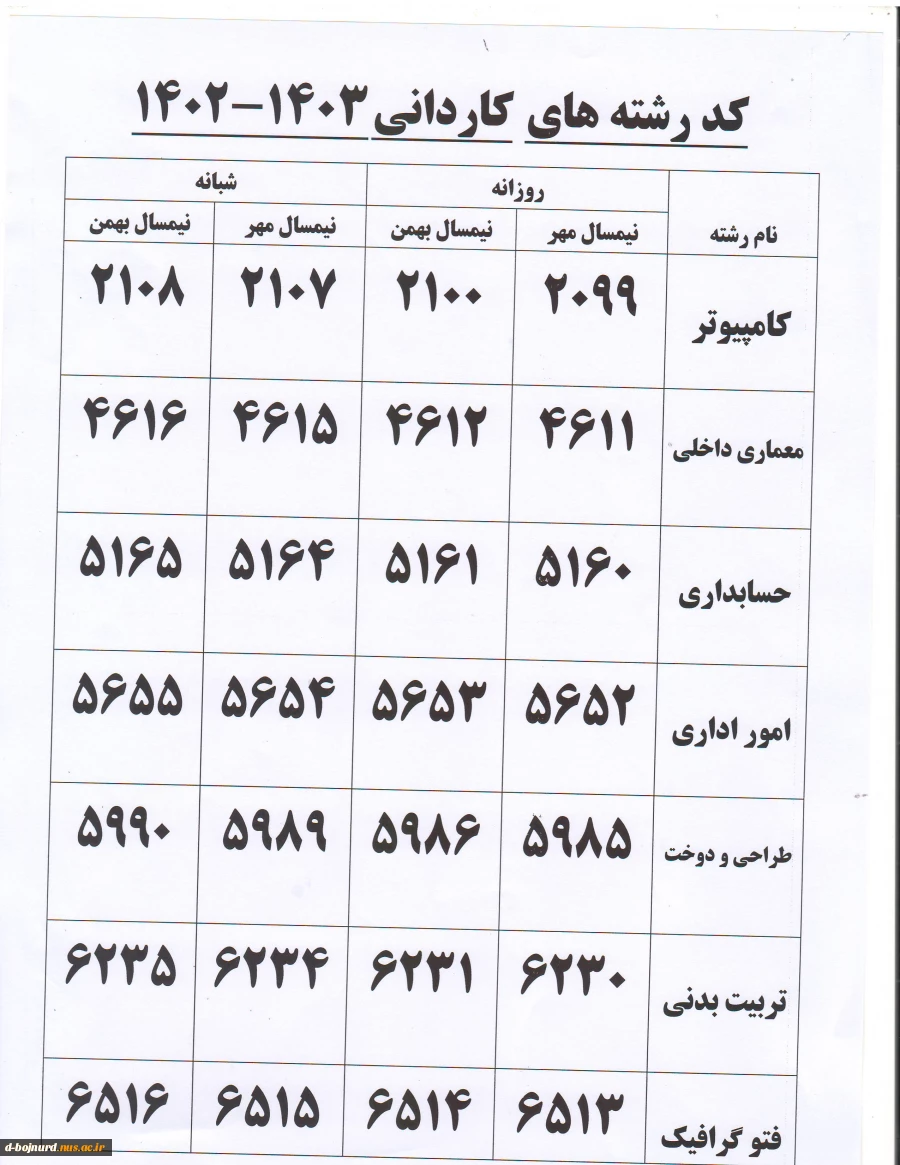 کد رشته های کاردانی ۱۴۰۳-۱۴۰۲
نام رشته روزانه شبانه
نیمسال مهر نیمسال بهمن نیمسال مهر نیمسال بهمن
کامپیوتر ۲۰۹۹ ۲۱۰۰ ۲۱۰۷ ۲۱۰۸
معماری داخلی ۴۶۱۱ ۴۶۱۲ ۴۶۱۵ ۴۶۱۶
حسابداری ۵۱۶۰ ۵۱۶۱ ۵۱۶۴ ۵۱۶۵
امور اداری ۵۶۵۲ ۵۶۵۳ ۵۶۵۴ ۵۶۵۵
طراحی و دوخت ۵۹۸۵ ۵۹۸۶ ۵۹۸۹ ۵۹۹۰
تربیت بدنی ۶۲۳۰ ۶۲۳۱ ۶۲۳۴ ۶۲۳۵
فتو گرافیک ۶۵۱۳ ۶۵۱۴ ۶۵۱۵ ۶۵۱۶
d-bojnurd.nus.ac.ir